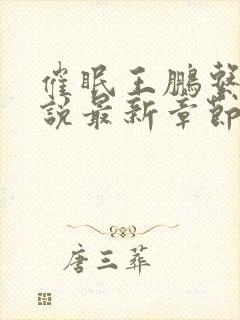 催眠王鹏繫
說最新章節
唐三葬